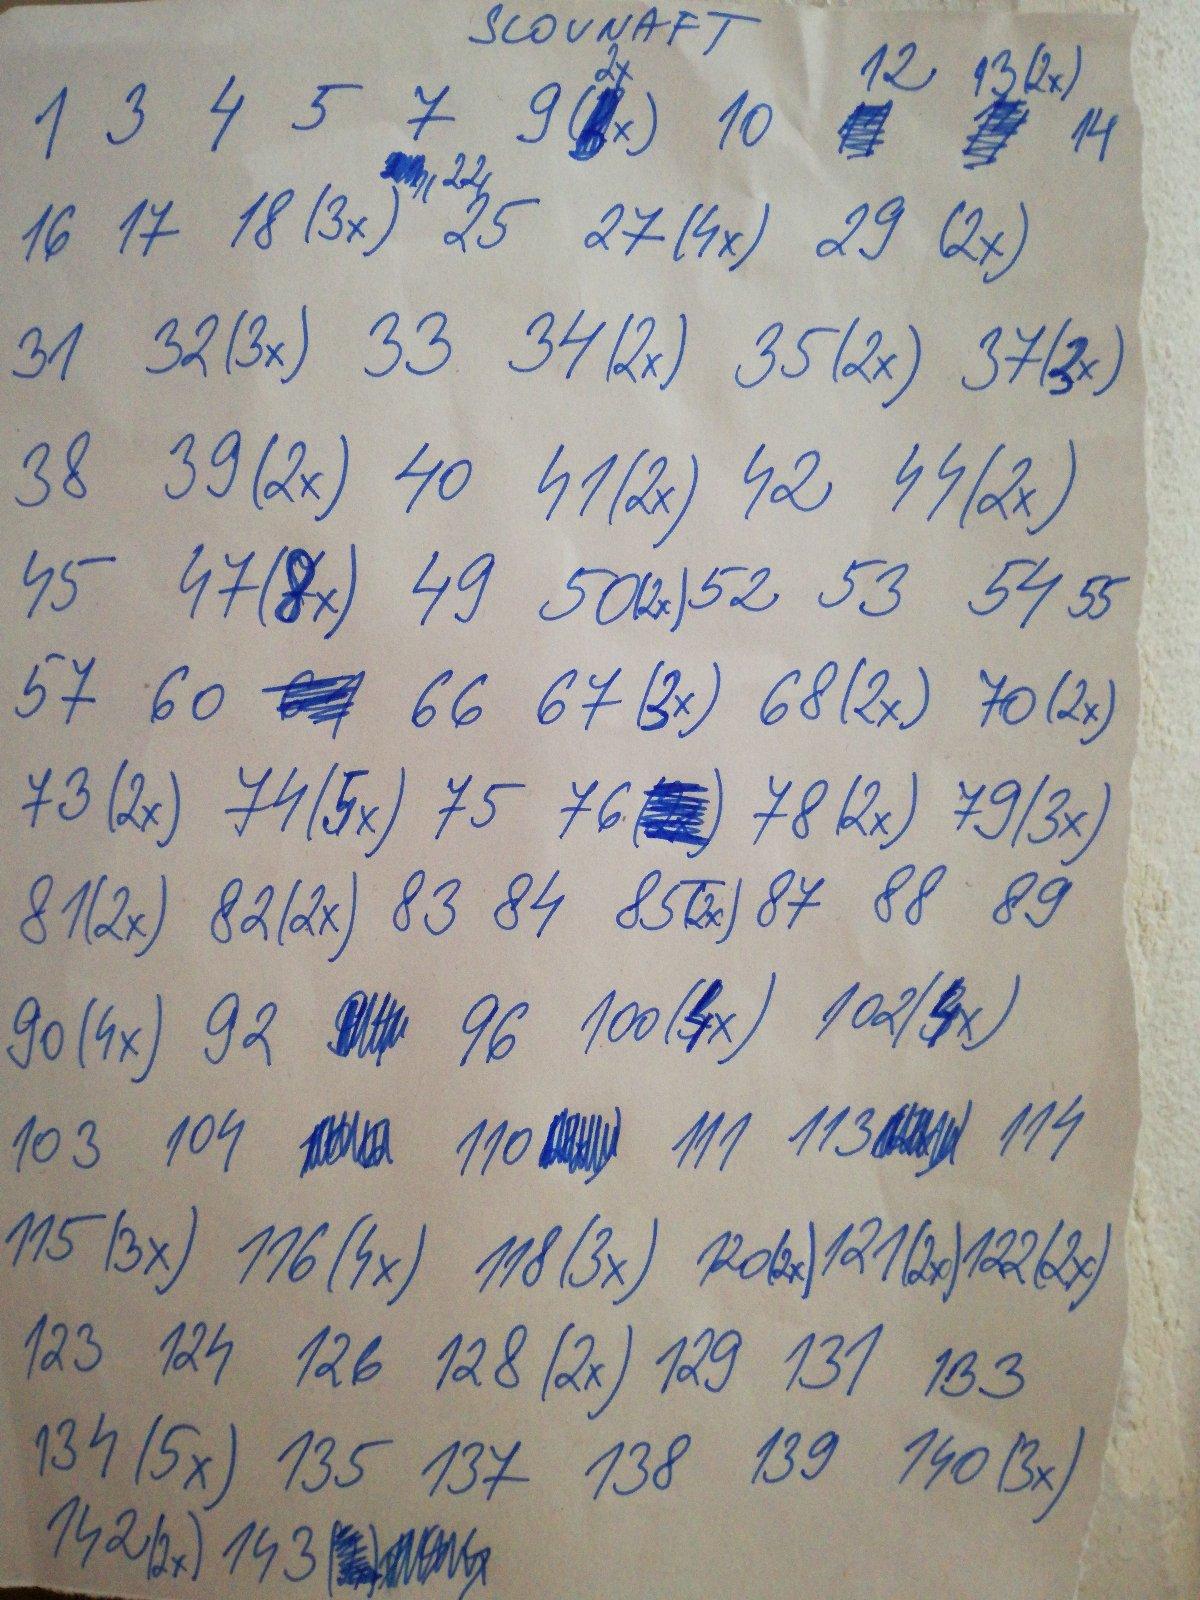 SLOVNAFT
1 3 4 5 7 9 (2x) 10 12 13 (2x) 14
22
16 17 18 (3x) 25 27 (4x) 29 (2x)
31 32 (3x) 33 34 (2x) 35 (2x) 37 (3x)
38 39 (2x) 40 41 (2x) 42 44 (2x)
45 47 (8x) 49 50 (2x) 52 53 54 55
57 60 66 67 (3x) 68 (2x) 70 (2x)
73 (2x) 74 (5x) 75 76 78 (2x) 79 (3x)
81 (2x) 82 (2x) 83 84 85 (2x) 87 88 89
90 (4x) 92 96 100 (4x) 102
103 104 110 111 113 114
115 (3x) 116 (4x) 118 (3x) 120 (2x) 121 (2x) 122 (2x)
123 124 126 128 (2x) 129 131 133
134 (5x) 135 137 138 139 140 (3x)
142 (2x) 143